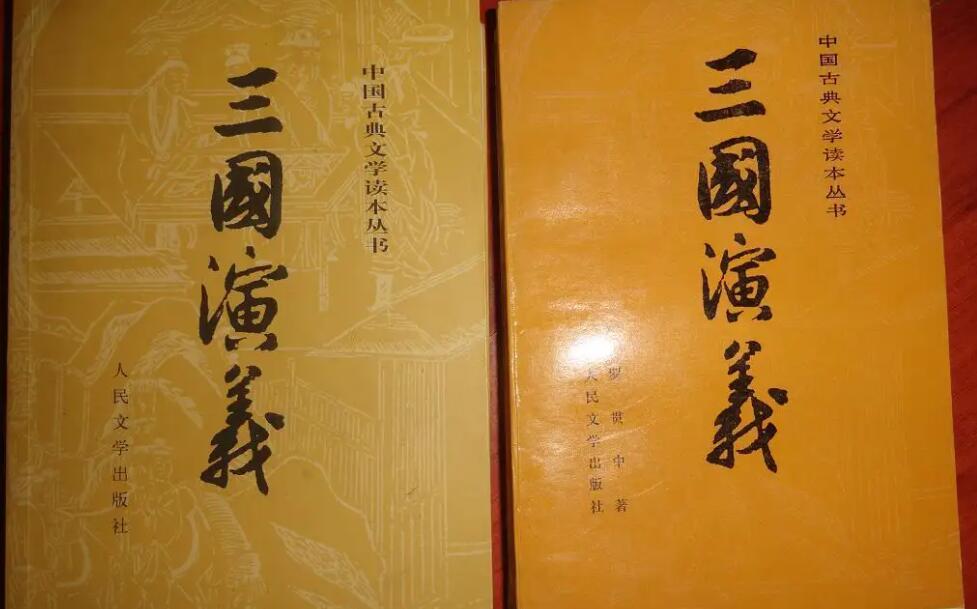 中国古典文学读本丛书
三國演義
人民文学出版社
中国古典文学读本丛书
三國演義
罗贯中著
人民文学出版社